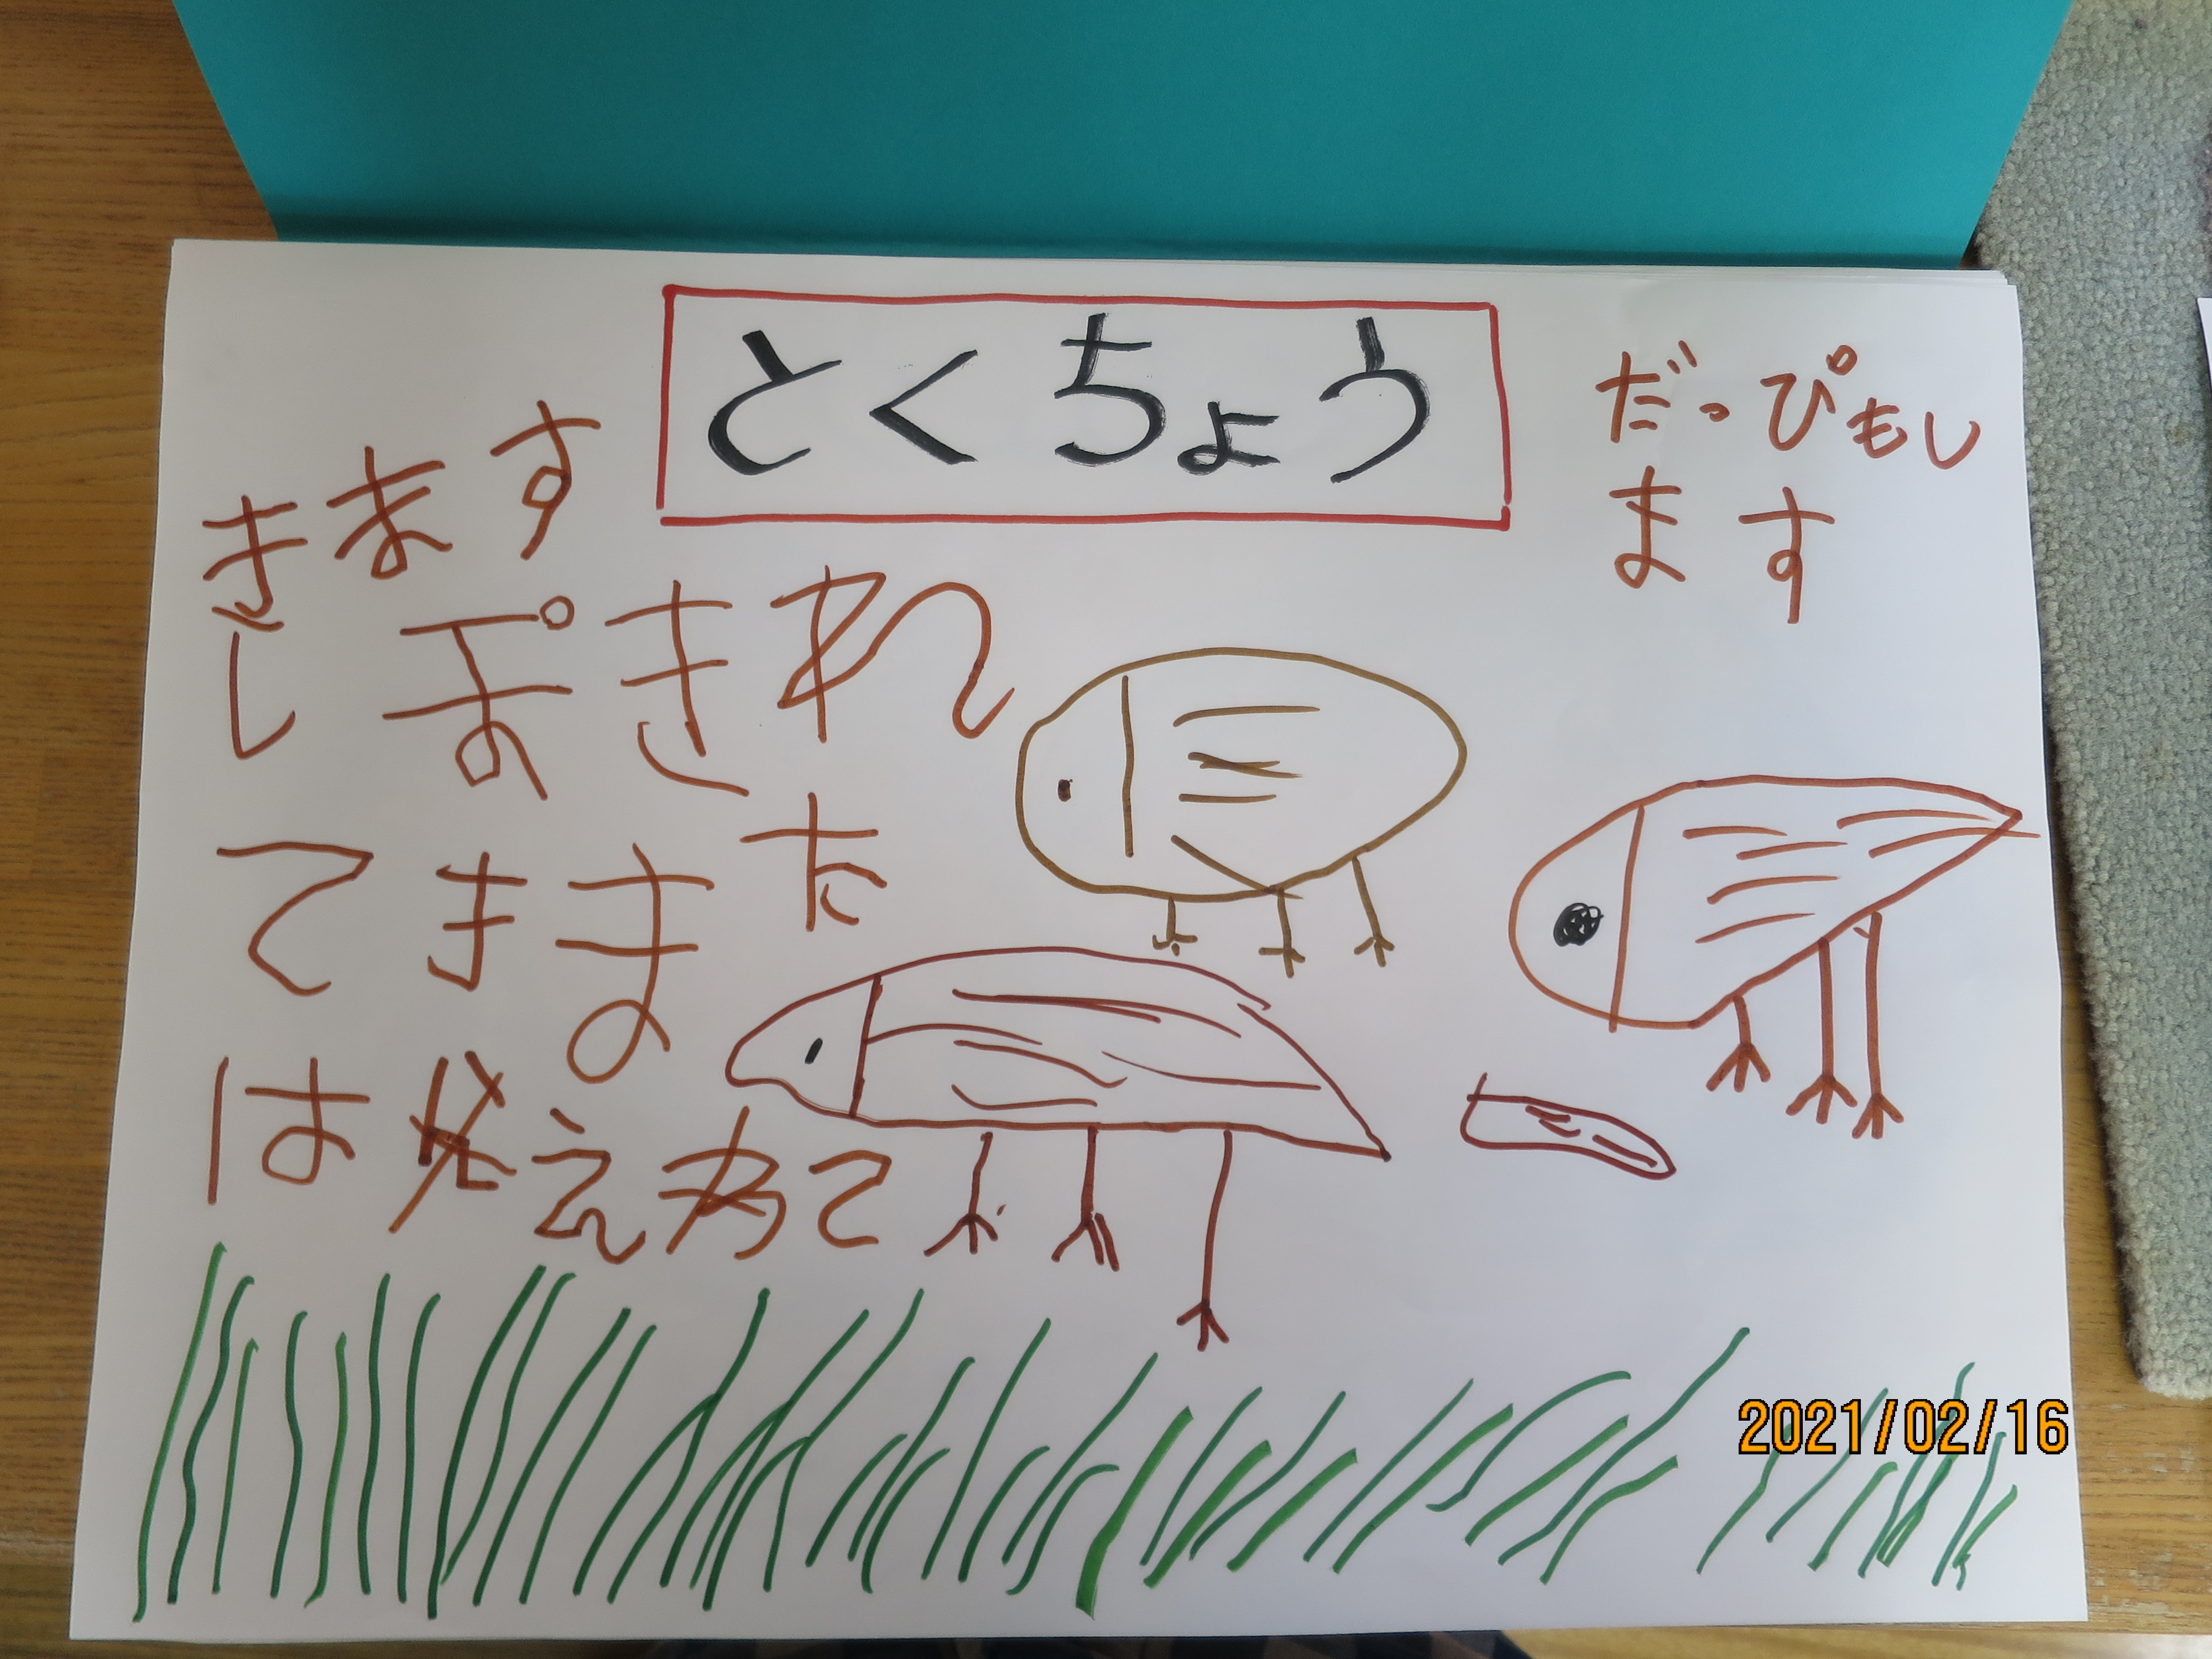 とくちょう
だっぴもし
ます
きます
しぽきれ
てきまた
はえて
2021/02/16